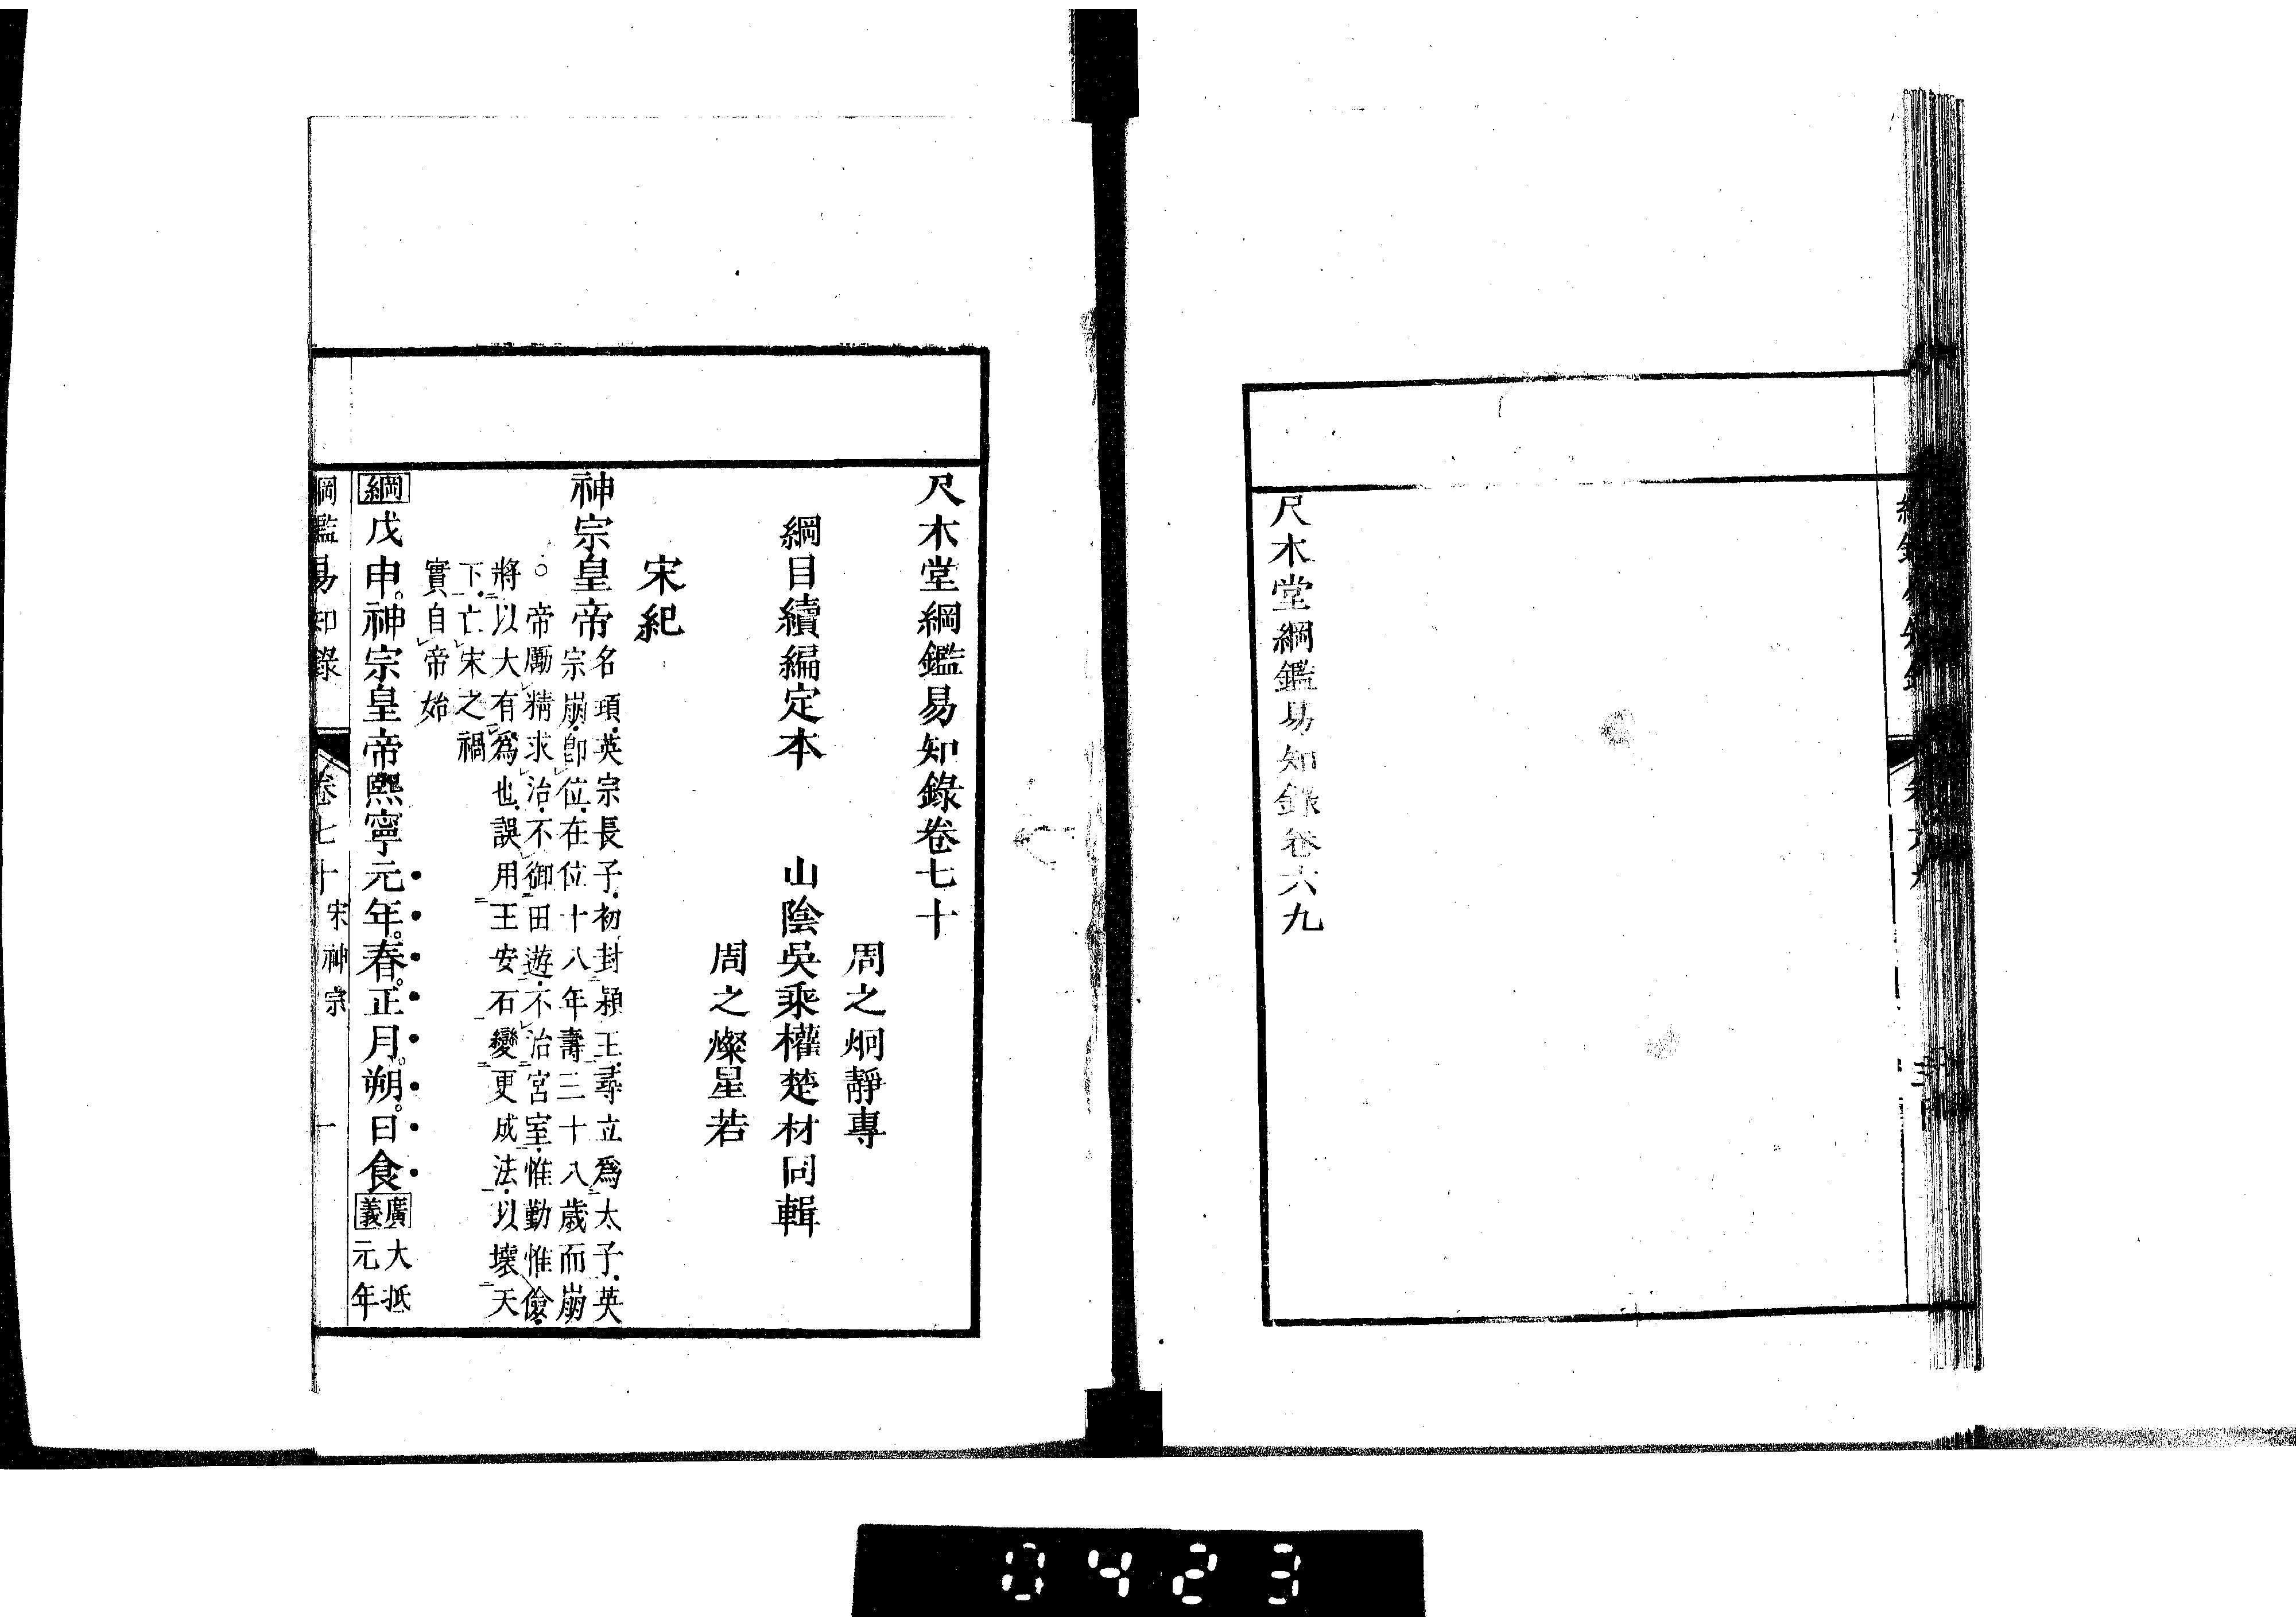 尺木堂綱鑑易知錄卷六九
尺木堂綱鑑易知錄卷七十
周之炯靜專
綱目續編定本　山陰吳乘權楚材同輯
周之燦星若
宋紀
神宗皇帝
名頊英宗長子初封潁王尋立爲太子英
宗崩卽位在位十八年壽三十八歲而崩
○帝勵精求治不御田遊不治宮室惟勤惟儉
將以大有爲也誤用王安石變更成法以壞天
下亡宋之禍
實自帝始
綱戊申神宗皇帝熙寧元年春正月朔日食
廣義大抵
元年
綱鑑易知錄　卷七十　宋神宗　一
0423